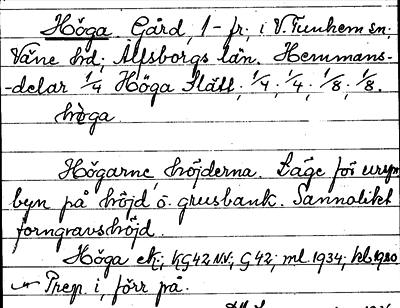 Höga. Gård, 1-fr; i V. Tunhem sn;
Väne hd; Älfsborgs län. Hemmans-
-delar 1/4 Höga Slätt; 1/4; 1/4; 1/8; 1/8.
höga
Högarne, höjderna. Läge för urspr
byn på höjd o. grusbank. Sannolikt
forngravshöjd.
Höga ek; KG42NV; G42; ml 1934;
Prep. i, förr på.